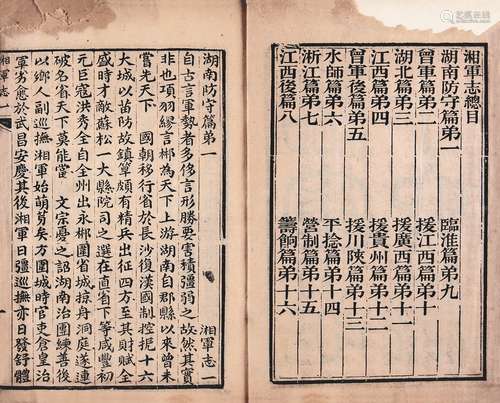 湘軍志總目
湖南防守篇弟一
曾軍篇弟二
湖北篇弟三
江西篇弟四
曾軍後篇弟五
水師篇弟六
浙江篇弟七
江西後篇八
臨淮篇弟九
援江西篇弟十
援廣西篇弟十一
援貴州篇弟十二
援川陝篇弟十三
平捻篇弟十四
營制篇弟十五
籌餉篇弟十六
湖南防守篇弟一 湘軍志一
自古言軍勢者多侈言形勝要害積彊弱之故然其實
非也項羽繆言郴為天下上游湖南自郡縣以來曾未
嘗先天下 國朝移行省於長沙復漢國制控扼十六
大城以苗防故鎮筸頗有精兵出征四方至其財賦全
盛時才敵蘇松一大縣院司之選在直省下等咸豐初
元巨寇洪秀全自全州出永郴圍省城掠舟洞庭遂連
破名省天下莫能當 文宗憂之詔湖南治團練善後
以鄉人副巡撫湘軍始萌芽矣方圍城時官吏倉皇治
軍劣愈於武昌安慶其後湘軍日彊巡撫亦日發舒體
湘軍志一